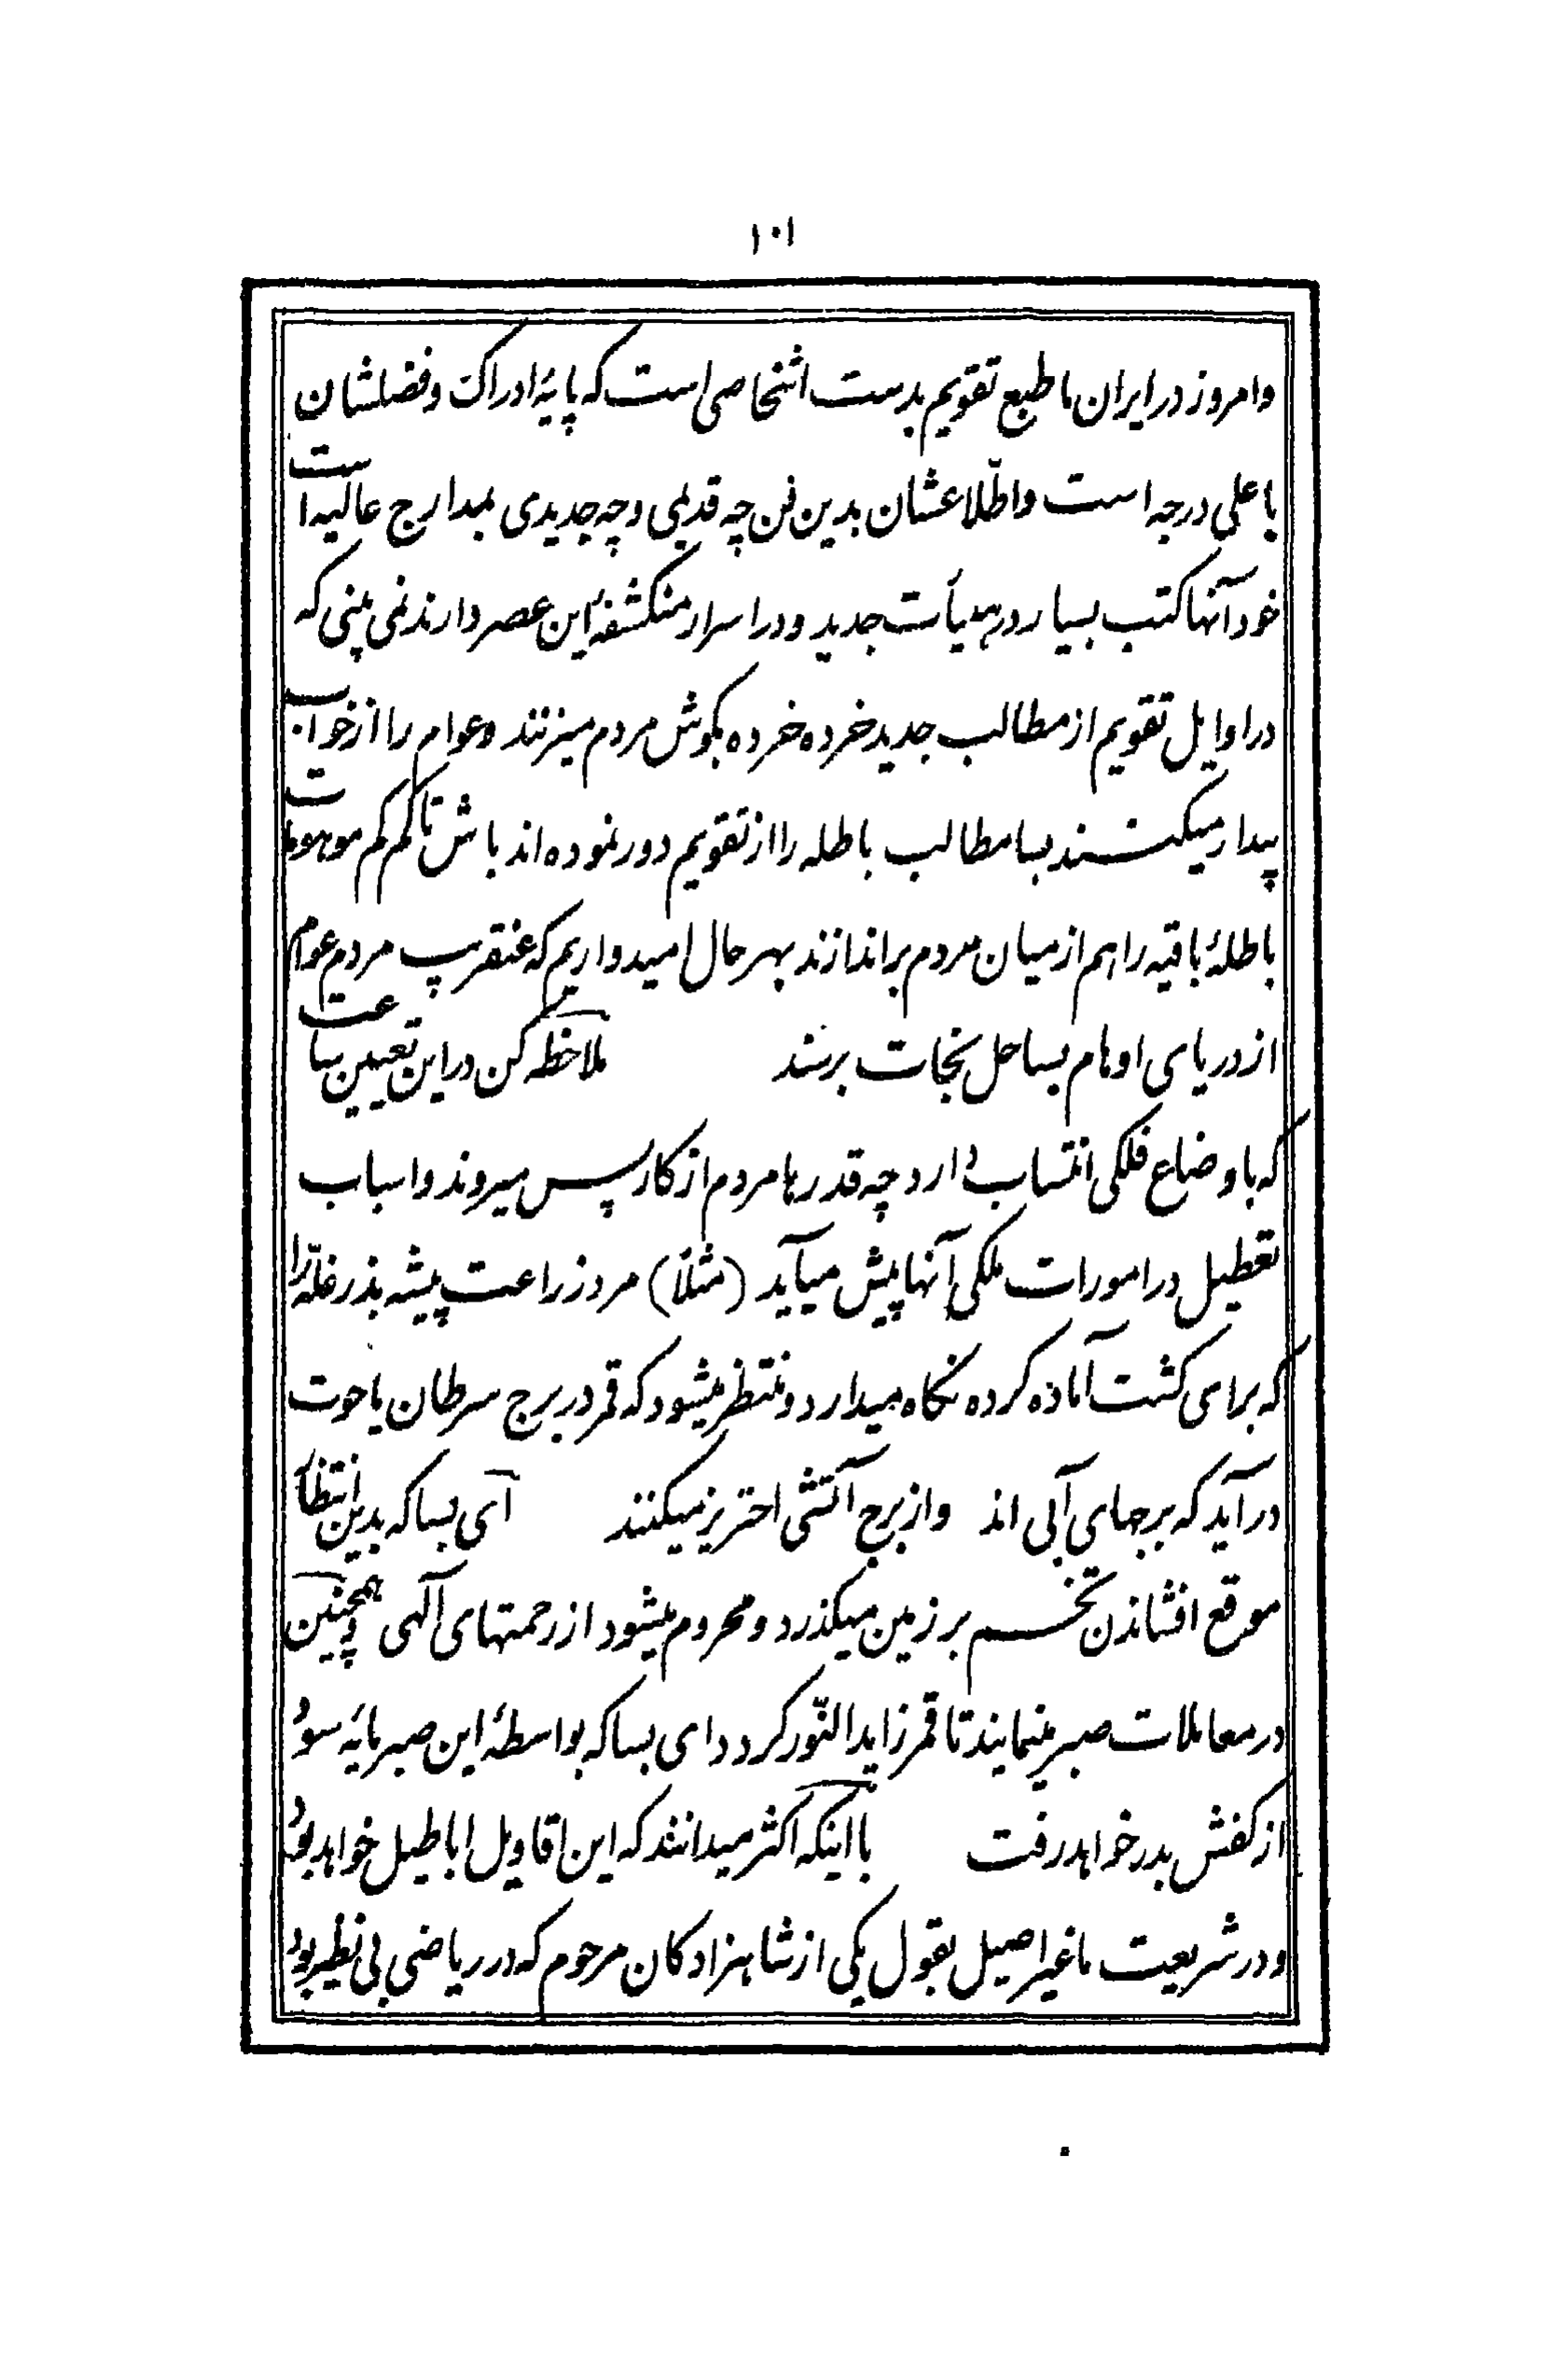 ۱۰۱
وامروز در ایران ما طبع تقویم بدست اشخاصی است که پایهٔ ادراک و فضلشان
باعلی درجه است واطّلاعشان بدین فن چه قدیمی وچه جدیدی بمدارج عالیه است
خود آنها کتب بسیار در هیأت جدید و در اسرار منکشفهٔ این عصر دارند نمی بینی که
در اوایل تقویم از مطالب جدید خرده خرده بگوش مردم میزنند وعوام را از خواب
بیدار میکنند بسا مطالب باطله را از تقویم دور نموده اند باش تا کم کم موهومات
باطلهٔ باقیه را هم از میان مردم براندازند بهر حال امیدواریم که عنقریب مردم عوام
از دریای اوهام بساحل نجات برسند ملاحظه کن در این تعیین ساعت
که باوضاع فلکی انتساب دارد چه قدرها مردم از کار پس میروند واسباب
تعطیل در امورات ملکی آنها پیش میآید (مثلاً) مرد زراعت پیشه بذر غلّه را
که برای کشت آماده کرده نگاه میدارد ومنتظر میشود که قمر در برج سرطان یا حوت
در آید که برجهای آبی اند واز برج آتشی احتریز میکنند آی بسا که بدین انتظار
موقع افشاندن تخم بر زمین میگذرد ومحروم میشود از رحمتهای آلهی وهمچنین
در معاملات صبر مینمایند تا قمر زاید النّور گردد ای بسا که بواسطهٔ این صبر مایهٔ سود
از کفش بدر خواهد رفت با اینکه اکثر میدانند که این اقاویل اباطیل خواهد بود
ودر شریعت ما غیر اصیل بقول یکی از شاهزادگان مرحوم که در ریاضی بی نظیر بود